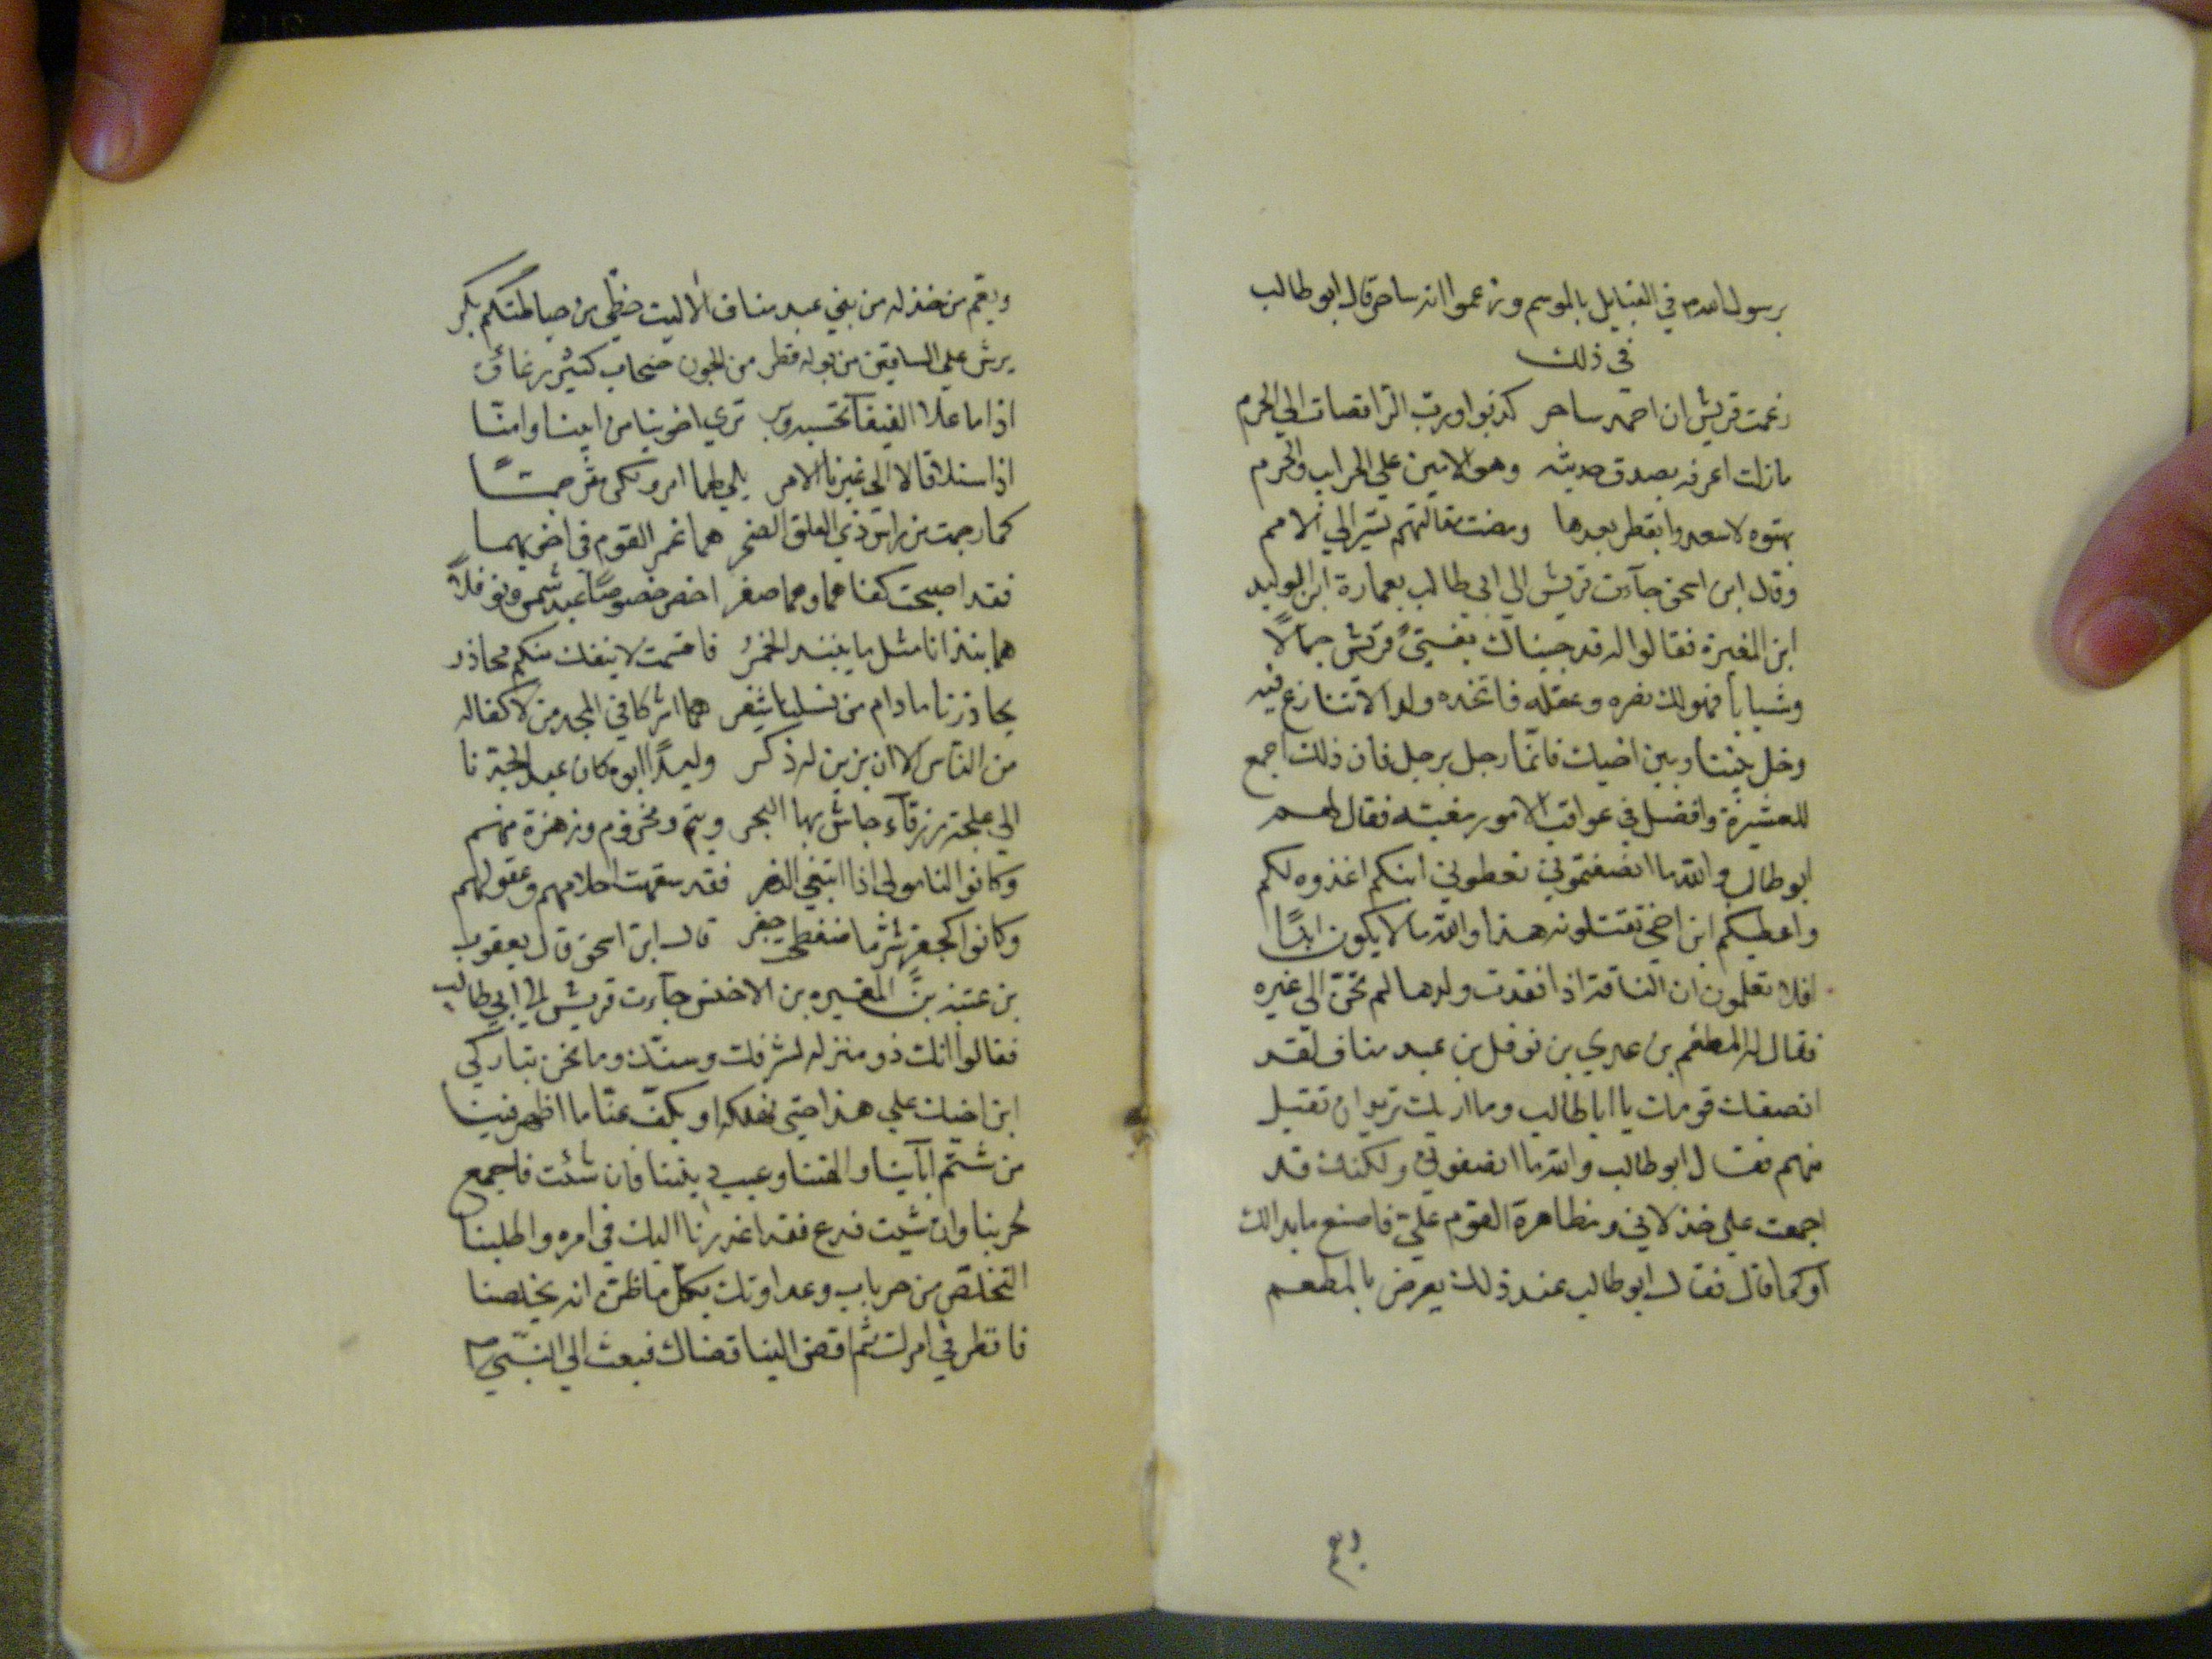 برسول الله م في القبايل بالموسم وزعموا انه ساحر قال ابو طالب
في ذلك
زعمت قريش ان احمد ساحر كذبوا ورب الراقصات الي الحرم
مازلت اعرفه بصدق حديثه وهو الامين علي الحرايب والحرم
بهتوه لاسعدوا بقطر بعدها ومضت مقالتهم تسير الي الامم
وقال ابن اسحق جآءت قريش الي ابي طالب بعمارة ابن الوليد
ابن المغيرة فقالوا له قد جيناك بفتي قريش جمالًا
وشبابا فهولك نصره وعقله فاتخذه ولدا لاتتنازع فيه
وخل بيننا وبين ابن اخيك فانّما رجل برجل فان ذلك اجمع
للعشيرة وافضل في عواقب الامور مغبته فقال لهم
ابو طالب والله ما انصفتموني تعطوني ابنكم اغذوه لكم
واعطيكم ابن اخي تقتلونه هذا والله ما لا يكون ابدًا
افلا تعلمون ان الناقة اذا فقدت ولدها لم تحنّ الي غيره
فقال له المطعم بن عدي بن نوفل بن عبد مناف لقد
انصفك قومك يا ابا طالب وما اريك تريد ان تقبل
منهم فقال ابو طالب والله ما انصفوني ولكنك قد
اجمعت علي خذلاني ومظاهرة القوم عليّ فاصنع ما بدا لك
او كما قال فقال ابو طالب عند ذلك يعرض بالمطعم
ويعّم من خذله من بني عبد مناف الا ليت حظّي من حياطتكم بكر
يرش علي الساقين من بوله قطر من الجون حبحاب كثير رغاؤه
اذا ما علا الفيفآ تحسبه وبر تري اخوينا من ابينا وامّنا
اذا سئلا قالا الي غيرنا الامر بلي لهما امر ولكن تفرجمتًا
كما رجمت من راس ذي العلق الصخر هما غمر القوم في اخويهما
فقد اصبحت كفاهما وهما صفر اخص خصوصًا عبد شمس ونوفلاً
هما نبذانا مثل ما ينبذ الخمرُ فاقسمت لاينفك منكم محاذر
يحاذرنا مادام من نسلينا شفر هما اشركا في المجد من لا كفا له
من الناس الا ان يزين له ذكر وليدًا ابوه كان عبد الجدنا
الي علجة زرقآء جاش بها البحر وتيم ومخزوم وزهرة منهم
وكانوا لنا مولي اذا ابتغي النصر فقد سفهت احلامهم وعقولهم
وكانوا كجعفر شرّ ما ضغطت جفر قال ابن اسحق قال يعقوب
بن عتبه بن المغيره بن الاخنس جآءت قريش الي ابي طالب
فقالوا انك ذو منزله لشرفك وسنّك وما نحن بتاركي
ابن اخيك علي هذا حتي نهلكه او يكفّ عنّا ما اظهر فينا
من شتم اباينا والهتنا وعيب ديننا فان شئت فاجمع
لحربنا وان شيت فدع فقد اعذرنا اليك في امره واطلبنا
التخلّص من حربك وعداوتك بكل ما ظن انه يخلصنا
فانظر في امرك ثم اقض الينا قضاك فبعث الي النبّي ص